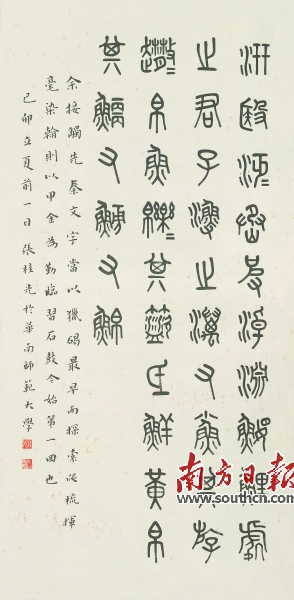 汧殹沔丞皮淖淵鰋鯉處
之君子漁之澫又小魚其斿
帛魚其氐鮮黃帛
其又又
余接觸先秦文字當以獵碣最早而探索從梳揮
毫染翰則以甲金為勤臨習石鼓今始第一回也
己卯立夏前一日張桂光於華南師範大學
南方日报
www.southcn.com